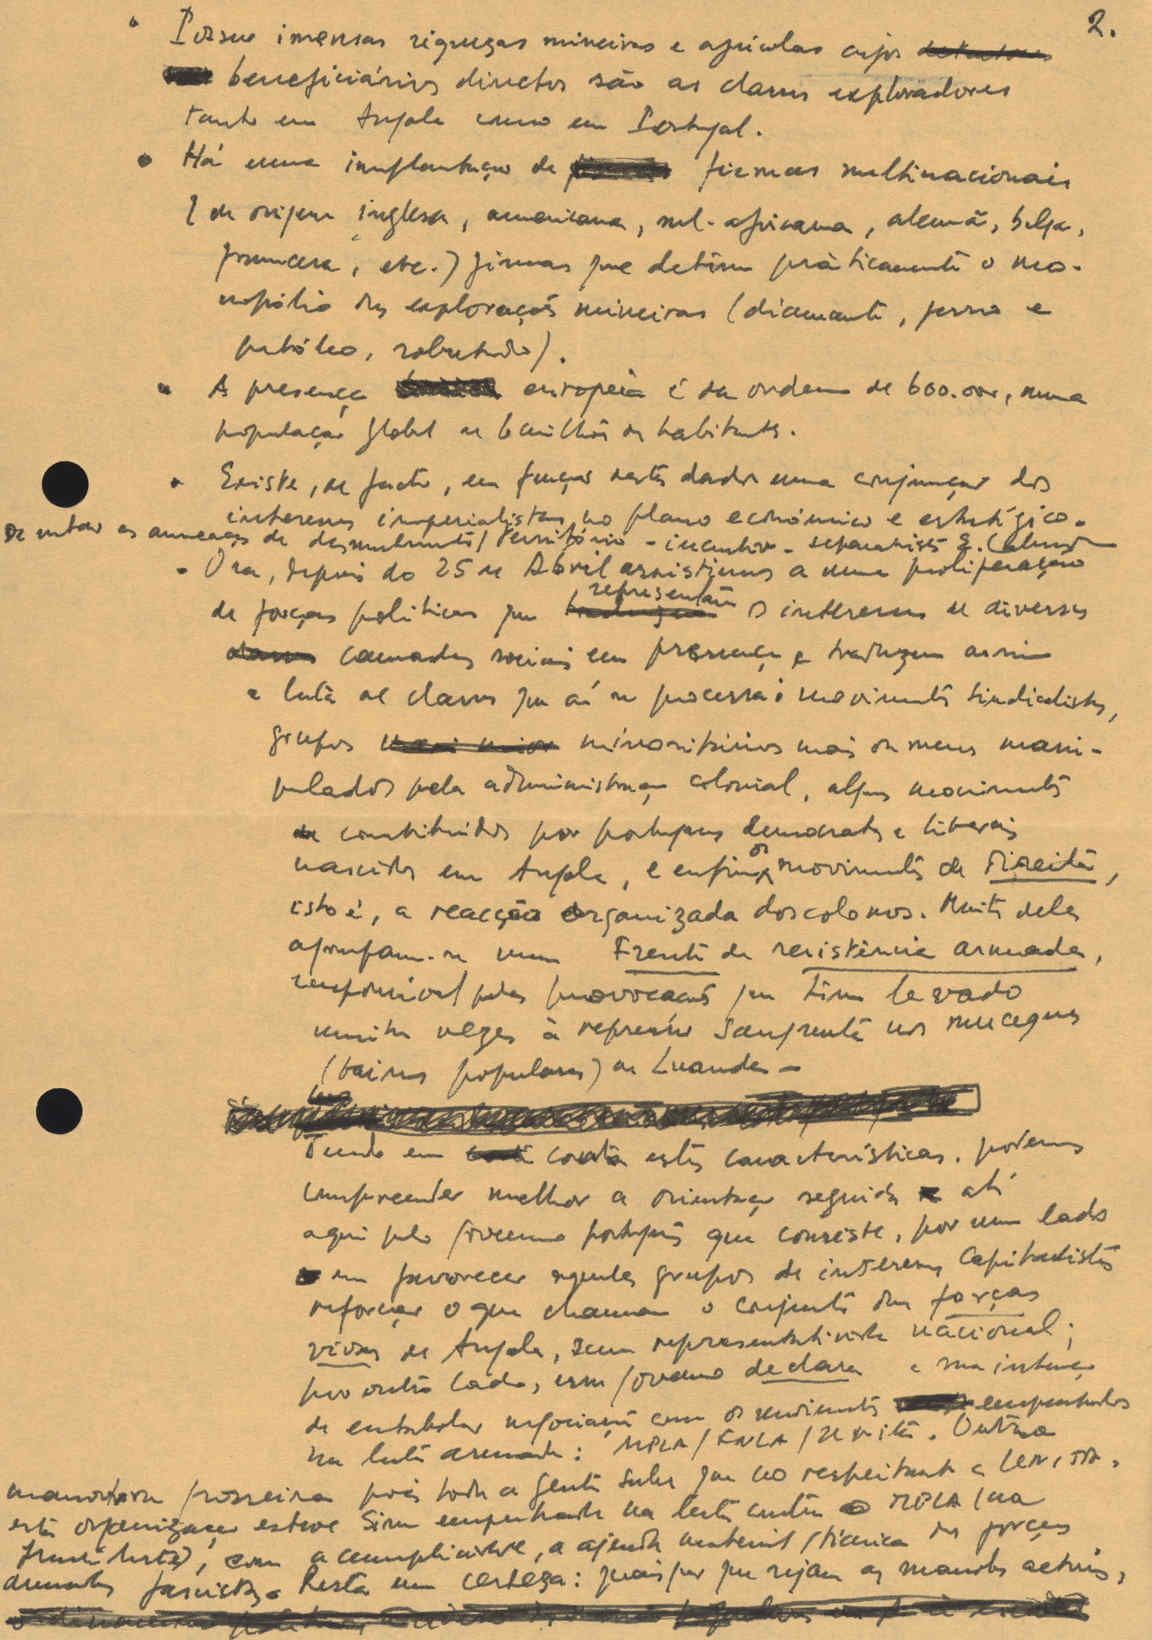 2.
• Possue imensas riquezas mineiras e agrícolas cujos
beneficiários directos são as classes exploradoras
tanto em Angola como em Portugal.
• Há uma implantação de firmas multinacionais
(de origem inglesa, americana, sul-africana, alemã, belga,
francesa, etc.) firmas que detêm pràticamente o mo-
nopólio das explorações mineiras (diamante, ferro e
petróleo, sobretudo).
• A presença europeia é da ordem de 600.000, numa
população global de 6 milhões de habitantes.
• Existe, de facto, em função destes dados uma conjunção dos
interesses imperialistas no plano económico e estratégico.
De notar as ameaças de desmembramento / território - incentivo - separatistas
• Ora, depois do 25 de Abril assistimos a uma proliferação
de forças políticas que representam os interesses de diversas
camadas sociais em presença e traduzem assim
a luta de classes que aí se processa: movimentos sindicalistas,
grupos minoritários mais ou menos mani-
pulados pela administração colonial, alguns movimentos
constituídos por portugueses democratas e liberais
nascidos em Angola, e enfim os movimentos da Direita,
isto é, a reacção organizada dos colonos. Muitos deles
agrupam-se numa Frente de resistência armada,
responsável pelas provocações que têm levado
muitas vezes à repressão sangrenta nos muceques
(bairros populares) de Luanda -
Tendo em conta estas características, podemos
compreender melhor a orientação seguida até
aqui pelo governo português que consiste, por um lado
em favorecer aqueles grupos de interesses capitalistas
reforçar o que chamam o conjunto das forças
vivas de Angola, sem representatividade nacional;
por outro lado, esse governo declara a sua intenção
de entabolar negociações com os movimentos empenhados
na luta armada: MPLA / FNLA / Unita. Outra
manobra grosseira pois toda a gente sabe que no respeitante a UNITA,
esta organização esteve sim empenhada na luta contra o MPLA (na
frente leste), com a cumplicidade, a ajuda material / técnica das forças
armadas fascistas. Resta uma certeza: quaisquer que sejam as manobras actuais,